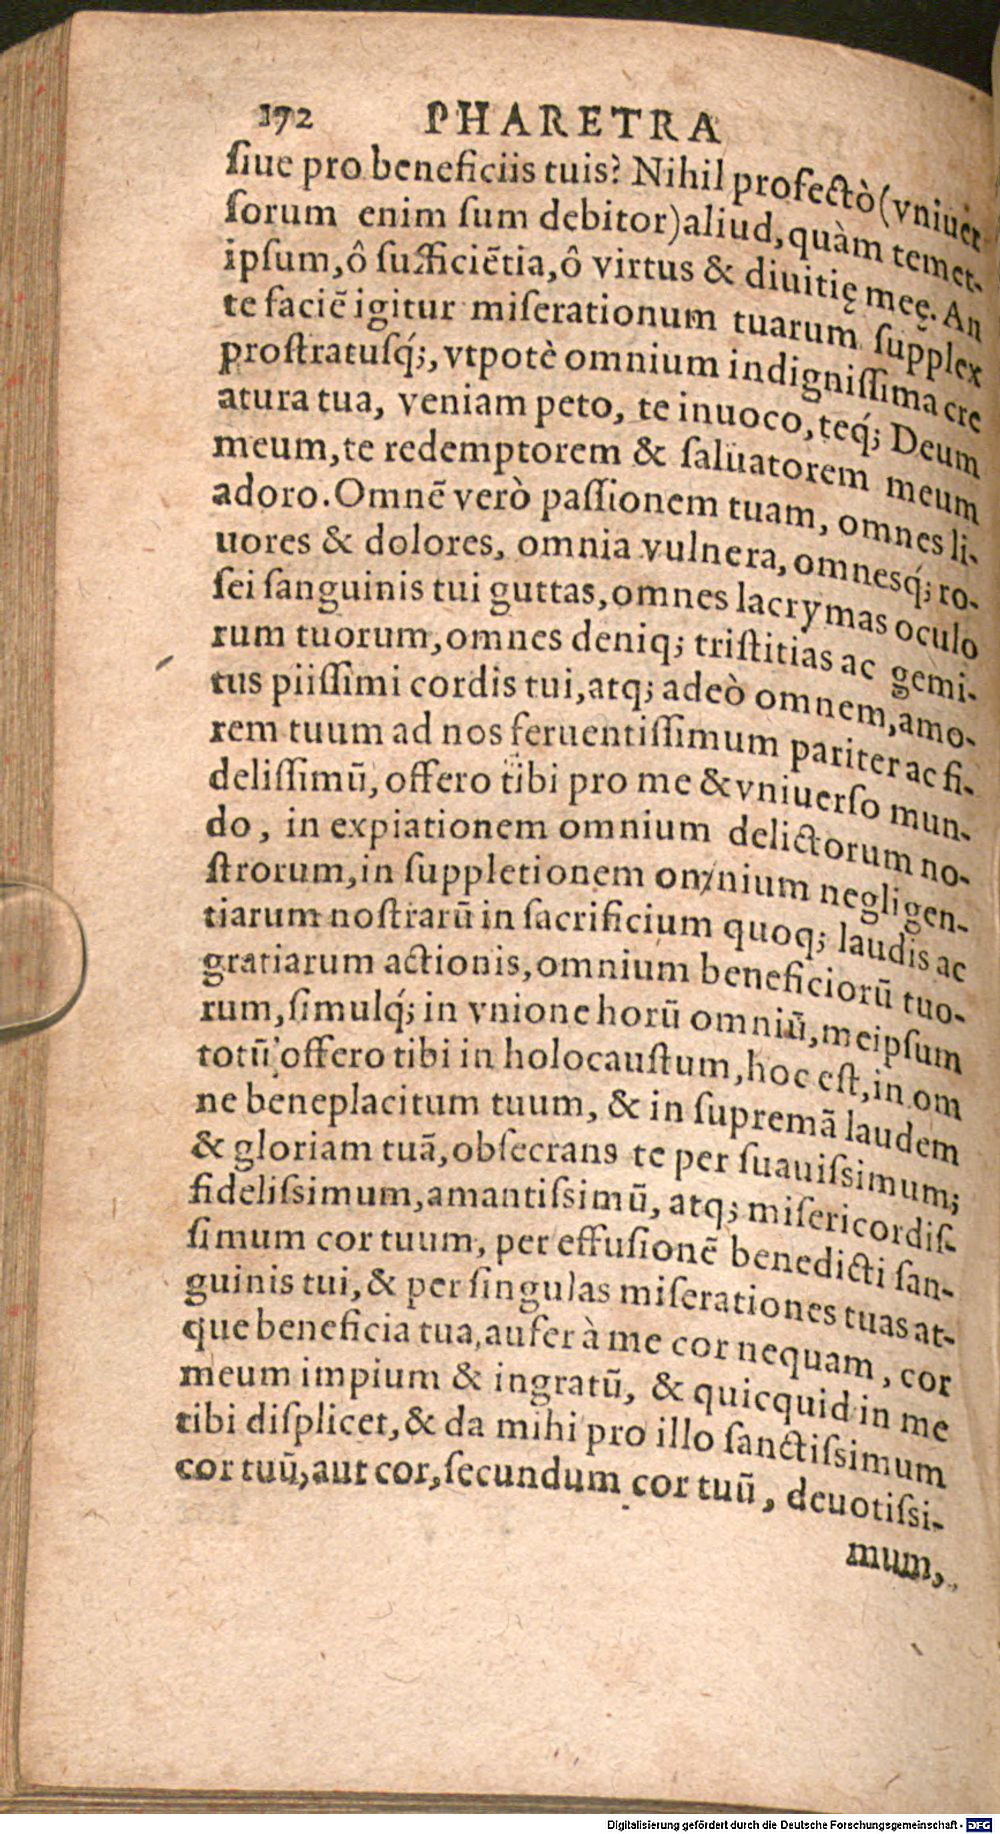 172 PHARETRA
ſiue pro beneficiis tuis? Nihil profectò (vniuer
ſorum enim ſum debitor) aliud, quàm temet-
ipſum, ô ſufficiẽtia, ô virtus & diuitię meę. An
te faciẽ igitur miſerationum tuarum ſupplex
proſtratuſq́;, vtpotè omnium indigniſſima cre
atura tua, veniam peto, te inuoco, teq́; Deum
meum, te redemptorem & ſaluatorem meum
adoro. Omnẽ verò paſſionem tuam, omnes li-
uores & dolores, omnia vulnera, omnesq́; ro-
ſei ſanguinis tui guttas, omnes lacrymas oculo
rum tuorum, omnes deniq; triſtitias ac gemi-
tus piiſſimi cordis tui, atq; adeò omnem, amo-
rem tuum ad nos feruentiſſimum pariter ac fi-
deliſſimũ, offero tibi pro me & vniuerſo mun-
do, in expiationem omnium delictorum no-
ſtrorum, in ſuppletionem omnium negligen-
tiarum noſtrarũ in ſacrificium quoq; laudis ac
gratiarum actionis, omnium beneficiorũ tuo-
rum, ſimulq́; in vnione horũ omniũ, meipſum
totũ offero tibi in holocauſtum, hoc eſt, in om
ne beneplacitum tuum, & in ſupremã laudem
& gloriam tuã, obſecrans te per ſuauiſsimum;
fideliſsimum, amantiſsimũ, atq; miſericordiſ-
ſimum cor tuum, per effuſionẽ benedicti ſan-
guinis tui, & per ſingulas miſerationes tuas at-
que beneficia tua, aufer à me cor nequam, cor
meum impium & ingratũ, & quicquid in me
tibi diſplicet, & da mihi pro illo ſanctiſsimum
cor tuũ, aut cor, ſecundum cor tuũ, deuotiſsi-
mum,
Digitalisierung gefördert durch die Deutsche Forschungsgemeinschaft - DFG